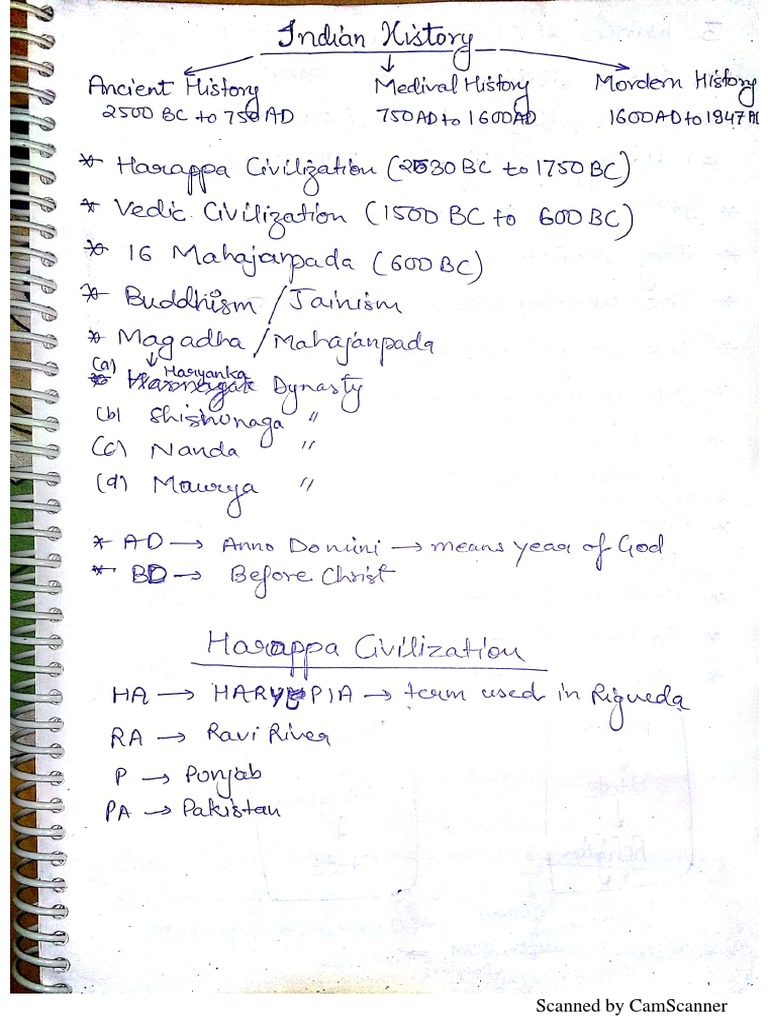 Indian History
Ancient History Medival History Mordern History
2500 BC to 750 AD 750 AD to 1600 AD 1600 AD to 1947 AD
* Harappa Civilization (2530 BC to 1750 BC)
* Vedic Civilization (1500 BC to 600 BC)
* 16 Mahajanpada (600 BC)
* Buddhism / Jainism
* Magadha / Mahajanpada
(a) Hariyanka Dynasty
(b) Shishunaga "
(c) Nanda "
(d) Maurya "
* AD → Anno Domini → means year of God
* BD → Before Christ
Harappa Civilization
HA → HARYUPIA → term used in Rigveda
RA → Ravi River
P → Punjab
PA → Pakistan
Scanned by CamScanner